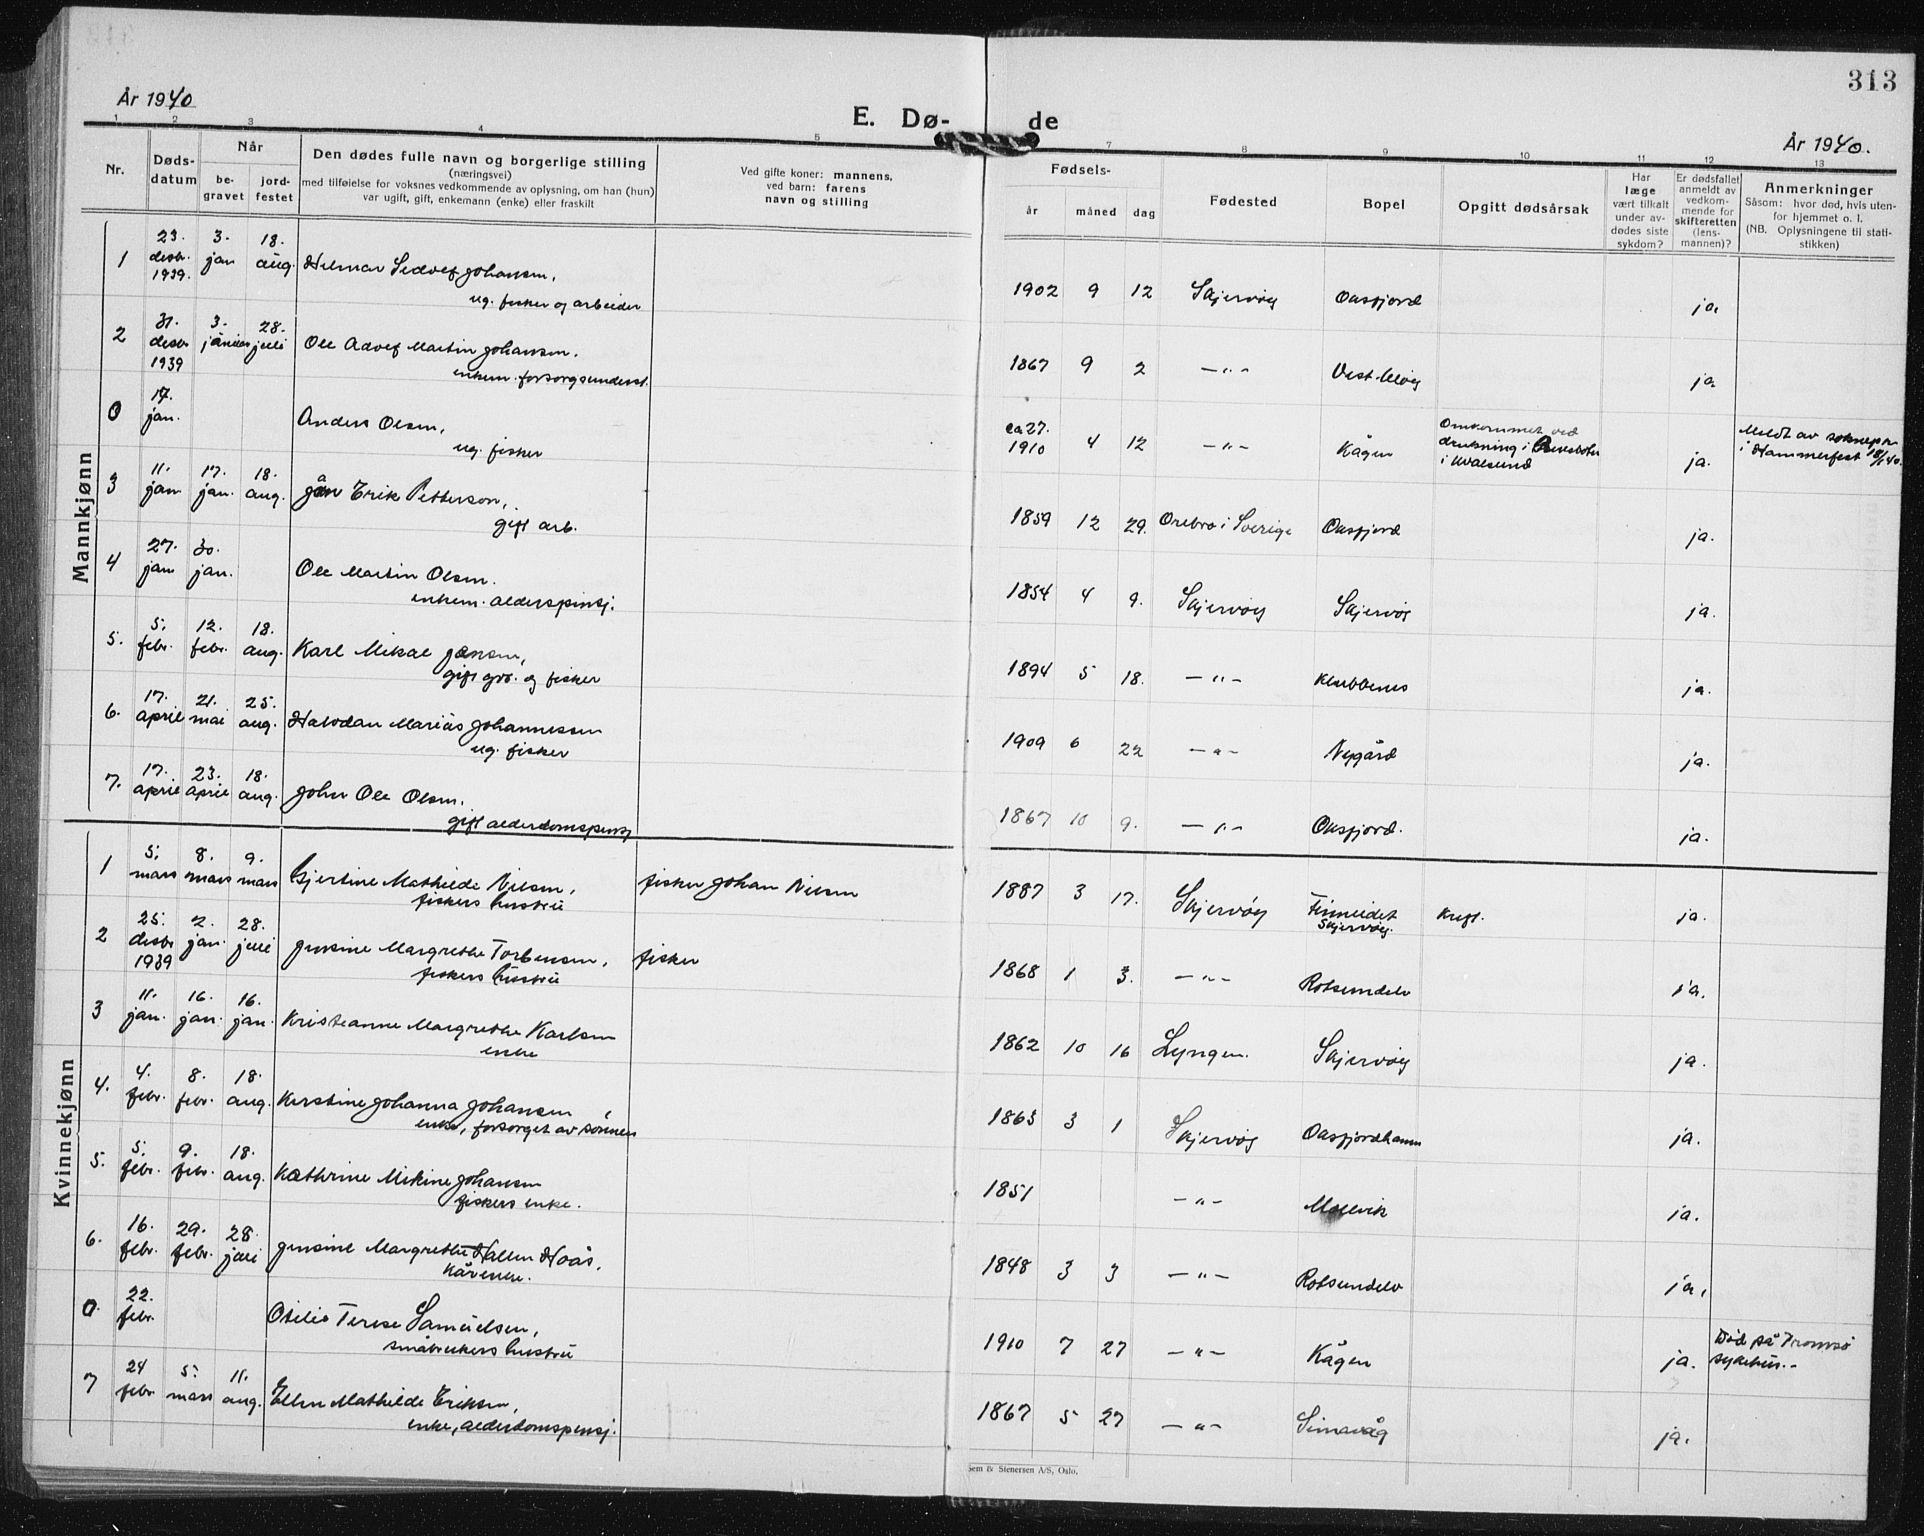 313
År 1940
E. Dø-
de
År 1940.
1 2 3 4 5 7 8 9 10 11 12 13
Nr.
Døds-
datum
Når
be-
gravet
jord-
festet
Den dødes fulle navn og borgerlige stilling
(næringsvei)
med tilføielse for voksnes vedkommende av oplysning, om han (hun)
var ugift, gift, enkemann (enke) eller fraskilt
Ved gifte koner: mannens,
ved barn: farens
navn og stilling
Fødsels-
år måned dag
Fødested
Bopel
Opgitt dødsårsak
Har
læge
vært tilkalt
under av-
dødes siste
sykdom?
Er dødsfallet
anmeldt av
vedkom-
mende for
skifteretten
(lens-
mannen)?
Anmerkninger
Såsom: hvor død, hvis uten-
for hjemmet o. l.
(NB. Oplysningene til stati-
stikken)
Mannkjønn
1 23. desbr. 1939. 3. jan 18. aug. Hilmar Sedvef Johansen,
ug. fisker og arbeider
1902 9 12 Skjervøy Oksfjord ja.
2 31. desbr 1939 3. januar 28. juli Ole Advef Martin Johansen.
enkem. forsorgsunderst.
1867 9 2 —"— Vest-Uløy ja
0 17. jan. Anders Olsen,
ug. fisker
ca 27. 1910 4 12 —"— Kågen Omkommet ved
drukning i
i Kvalsund
ja. Meldt av soknepr.
i Hammerfest 18/1 40.
3 11. jan 17. jan. 18. aug. Jån Erik Petterson,
gift arb.
1859 12 29. Örebro i Sverige Oksfjord ja.
4 27. jan 30. jan. Ole Martin Olsen.
enkem. alderspensj.
1854 4 9. Skjervøy Skjervøy ja.
5. 5. febr. 12. febr. 18. aug. Karl Mikal Jensen,
gift gbr. og fisker
1894 5 18. —"— Klubbenes ja.
6. 17. april 21. mai 25. aug. Halvdan Marius Johannessen
ug. fisker
1909 6 22 —"— Nygård ja.
7. 17. april 23. april 18. aug. Johan Ole Olsen.
gift alderdomspensj
1867 10 9. —"— Oksfjord. ja.
Kvinnekjønn
1 5. mars 8. mars 9. mars Gjertine Mathilde Nilsen,
fiskers hustru
fisker Johan Nilsen
1887 3 17. Skjervøy Finneidet
Skjervøy.
Kreft. ja.
2 25. desbr 1939 2. jan. 28. juli Jensine Margrethe Torbensen,
fiskers hustru
fisker
1868 1 3. —"— Rotsundelv ja.
3 11. jan. 16. jan. 16. jan. Kristianne Margrethe Karlsen
enke
1862 10 16 Lyngen. Skjervøy ja.
4. 4. febr. 8. febr. 18. aug. Kirstine Johanna Johansen,
enke, forsorget av sønnen
1863 3 1 Skjervøy Oksfjordhamn ja.
5. 5. febr. 9. febr. 18. aug. Kathrine Mikine Johansen
fiskers enke.
1851 —"— Mollvik ja.
6. 16. febr. 29. febr. 28. juli Jensine Margrethe Hallen Hoås,
Kårenke.
1848 3 3 —"— Rotsundelv ja.
0. 22. febr. Otelie Terese Samuelsen,
småbrukers hustru
1910 7 27 —"— Kågen ja. Død på Tromsø
sykehus.-
7 24 febr. 5. mars 11. aug. Ellen Mathilde Eriksen,
enke, alderdomspensj.
1867 5 27 —"— Simavåg ja.
Sem & Stenersen A/S, Oslo.